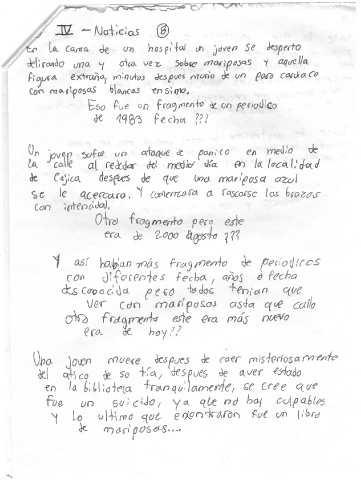 IV - Noticias 8
En la cama de un hospital un joven se desperto
delirando una y otra vez sobre mariposas y aquella
figura extraña, minutos despues murio de un paro cardiaco
con mariposas blancas ensimo.
Eso fue un fragmento de un periodico
de 1983 fecha ???
Un joven sufre un ataque de panico en medio de
la calle al rededor del medio dia en la localidad
de Cajica despues de que una mariposa azul
se le acercara. Y comenzara a rascarse los brazos
con intencidad.
Otro fragmento pero este
era de 2000 Agosto ???
Y así habian más fragmento de periodicos
con diferentes fecha, años o fecha
desconocida pero todos tenian que
ver con mariposas asta que callo
otro fragmento este era más nuevo
era de hoy??
Una joven muere despues de caer misteriosamente
del atico de su tía, despues de aver estado
en la biblioteca tranquilamente, se cree que
fue un suicido, ya que no hay culpables
y lo ultimo que encontraron fue un libro
de mariposas....